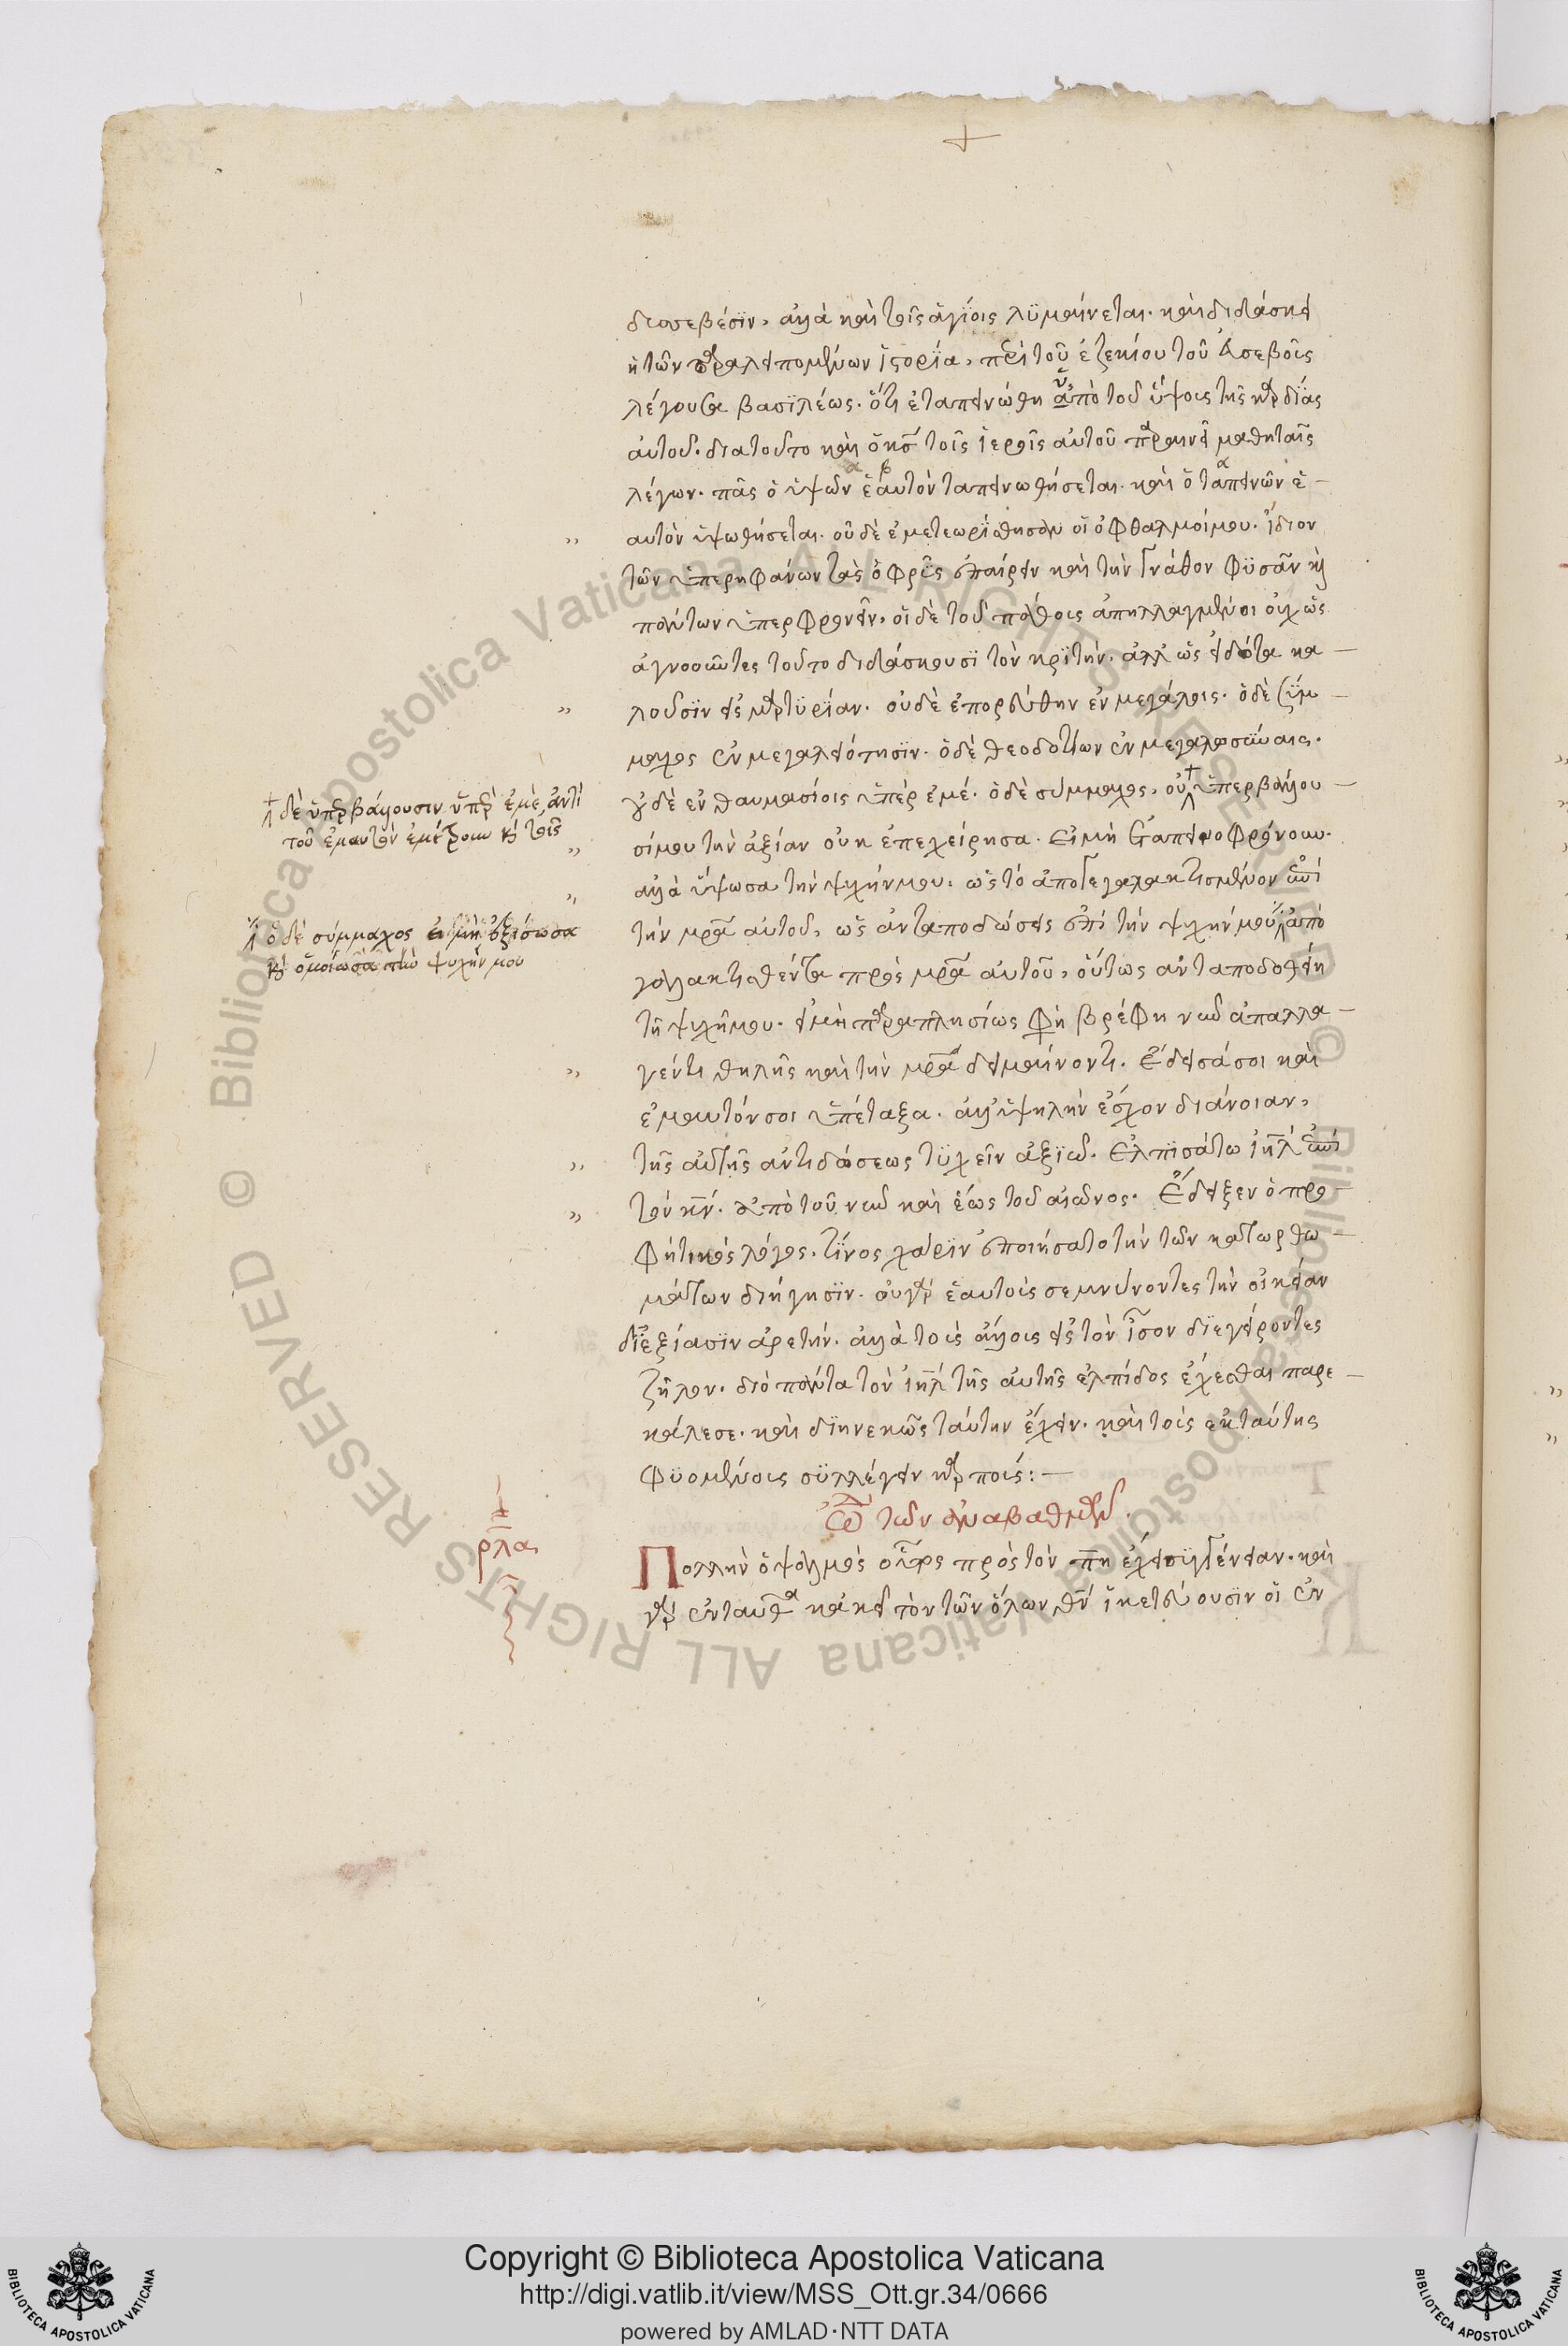 διασεβέσϊν, ἀλλὰ καὶ τοῖς ἁγίοις λϋμαίνεται. καὶ διδάσκει
ἡ τῶν παραλειπομένων ἱστορία, περὶ τοῦ ἐζεκίου τοῦ εὐσεβοῦς
λέγουσα βασϊλέως. ὅτι ἐταπεινώθη ἀπὸ τοῦ ὕψους τῆς καρδίας
αὐτοῦ. διατοῦτο καὶ ὁ κς τοῖς ἱεροῖς αὐτοῦ παραινεῖ μαθηταῖς
λέγων. πᾶς ὁ ὑψῶν ἑαυτὸν ταπεινωθήσεται. καὶ ὁ ταπεινῶν ἑ-
αυτὸν ὑψωθήσεται. οὐδὲ ἐμετεωρίσθησαν οἱ ὀφθαλμοίμου. ἴδιον
τῶν ὑπερηφάνων τὰς ὀφρῦς ἐπαίρειν καὶ τὴν γνάθον φϋσᾶν κὶ
πάντων ὑπερφρονεῖν, οἱ δὲ τοῦ πάθους ἀπηλλαγμένοι οὐχ ὡς
ἀγνοοῦντες τοῦτο διδάσκουσϊ τὸν κρϊτήν. ἀλλ' ὡς εἰδότα κα-
λοῦσϊν εἰς μαρτϋρίαν. οὐδὲ ἐπορεύθην ἐν μεγάλοις. ὁ δὲ σύμ-
μαχος ἐν μεγαλειότησϊν. ὁ δὲ θεοδοτίων ἐν μεγαλωσύναις.
οὐδὲ ἐν θαυμασίοις ὑπὲρ ἐμέ. ὁ δὲ σύμμαχος, οὐ ὑπερβάλλου-
σίμου τὴν ἀξίαν οὐκ ἐπεχείρησα. Εἰ μὴ ἐταπεινοφρόνουν.
ἀλλὰ ὕψωσα τὴν ψυχήνμου. ὡς τὸ ἀπογεγαλακτισμένον ἐπὶ
τὴν μρα αὐτοῦ, ὡς ἀνταποδώσεις ἐπὶ τὴν ψυχήν μου ἀπὸ
γαλακτισθέντα πρὸς μρα αὐτοῦ, οὕτως ἀνταποδοθείη
τῇ ψυχῇμου. εἰ μὴ παραπλησίως φη βρέφη νῦν ἀπαλλα-
γέντι θηλῆς καὶ τὴν μρα δειμαίνοντι. ἔδεισά σοι καὶ
ἐμαυτόν σοι ὑπέταξα. ἀλλ' ὑψηλὴν ἔσχον διάνοιαν,
τῆς αὐτῆς ἀντιδόσεως τϋχεῖν ἀξϊῶ. Ἐλπϊσάτω ιηλ ἐπὶ
τὸν κν. ἀπὸ τοῦ νῦν καὶ ἕως τοῦ αἰῶνος. Ἔδειξεν ὁ προ-
φητικὸς λόγος. τίνος χάρϊν ἐποιήσατο τὴν τῶν κατωρθω-
μάτων διήγησϊν. οὐγὰρ ἑαυτοὺς σεμνύνοντες τὴν οἰκείαν
διεξίασϊν ἀρετήν. ἀλλὰ τοὺς ἄλλους εἰς τὸν ἴσον διεγείροντες
ζῆλον. διὸ πάντα τὸν ιηλ τῆς αὐτῆς ἐλπίδος ἔχεσθαι παρε-
κάλεσε. καὶ διηνεκῶς ταύτην ἔχειν. καὶ τοὺς ἐκ ταύτης
φϋομένους σϋλλέγειν καρπούς: —
ὠδὴ τῶν ἀναβαθμῶν.
Πολλὴν ὁ ψαλμὸς οὗτος πρὸς τὸν πη ἔχει συγγένειαν. καὶ
γὰρ ἐνταῦθα κἀκεῖ τὸν τῶν ὅλων θν ἱκετεύουσϊν οἱ ἐν
δὲ ὑπερβάλλουσιν ὑπὲρ ἐμὲ, ἀντὶ
τοῦ ἐμαυτὸν ἐμέτρουν κὶ τοῖς
ὁ δὲ σύμμαχος εἰ μὴ ἐξίσωσα
κὶ ὁμοίωσα τὴν ψυχήν μου
ρλα
Copyright © Biblioteca Apostolica Vaticana
http://digi.vatlib.it/view/MSS_Ott.gr.34/0666
powered by AMLAD·NTT DATA